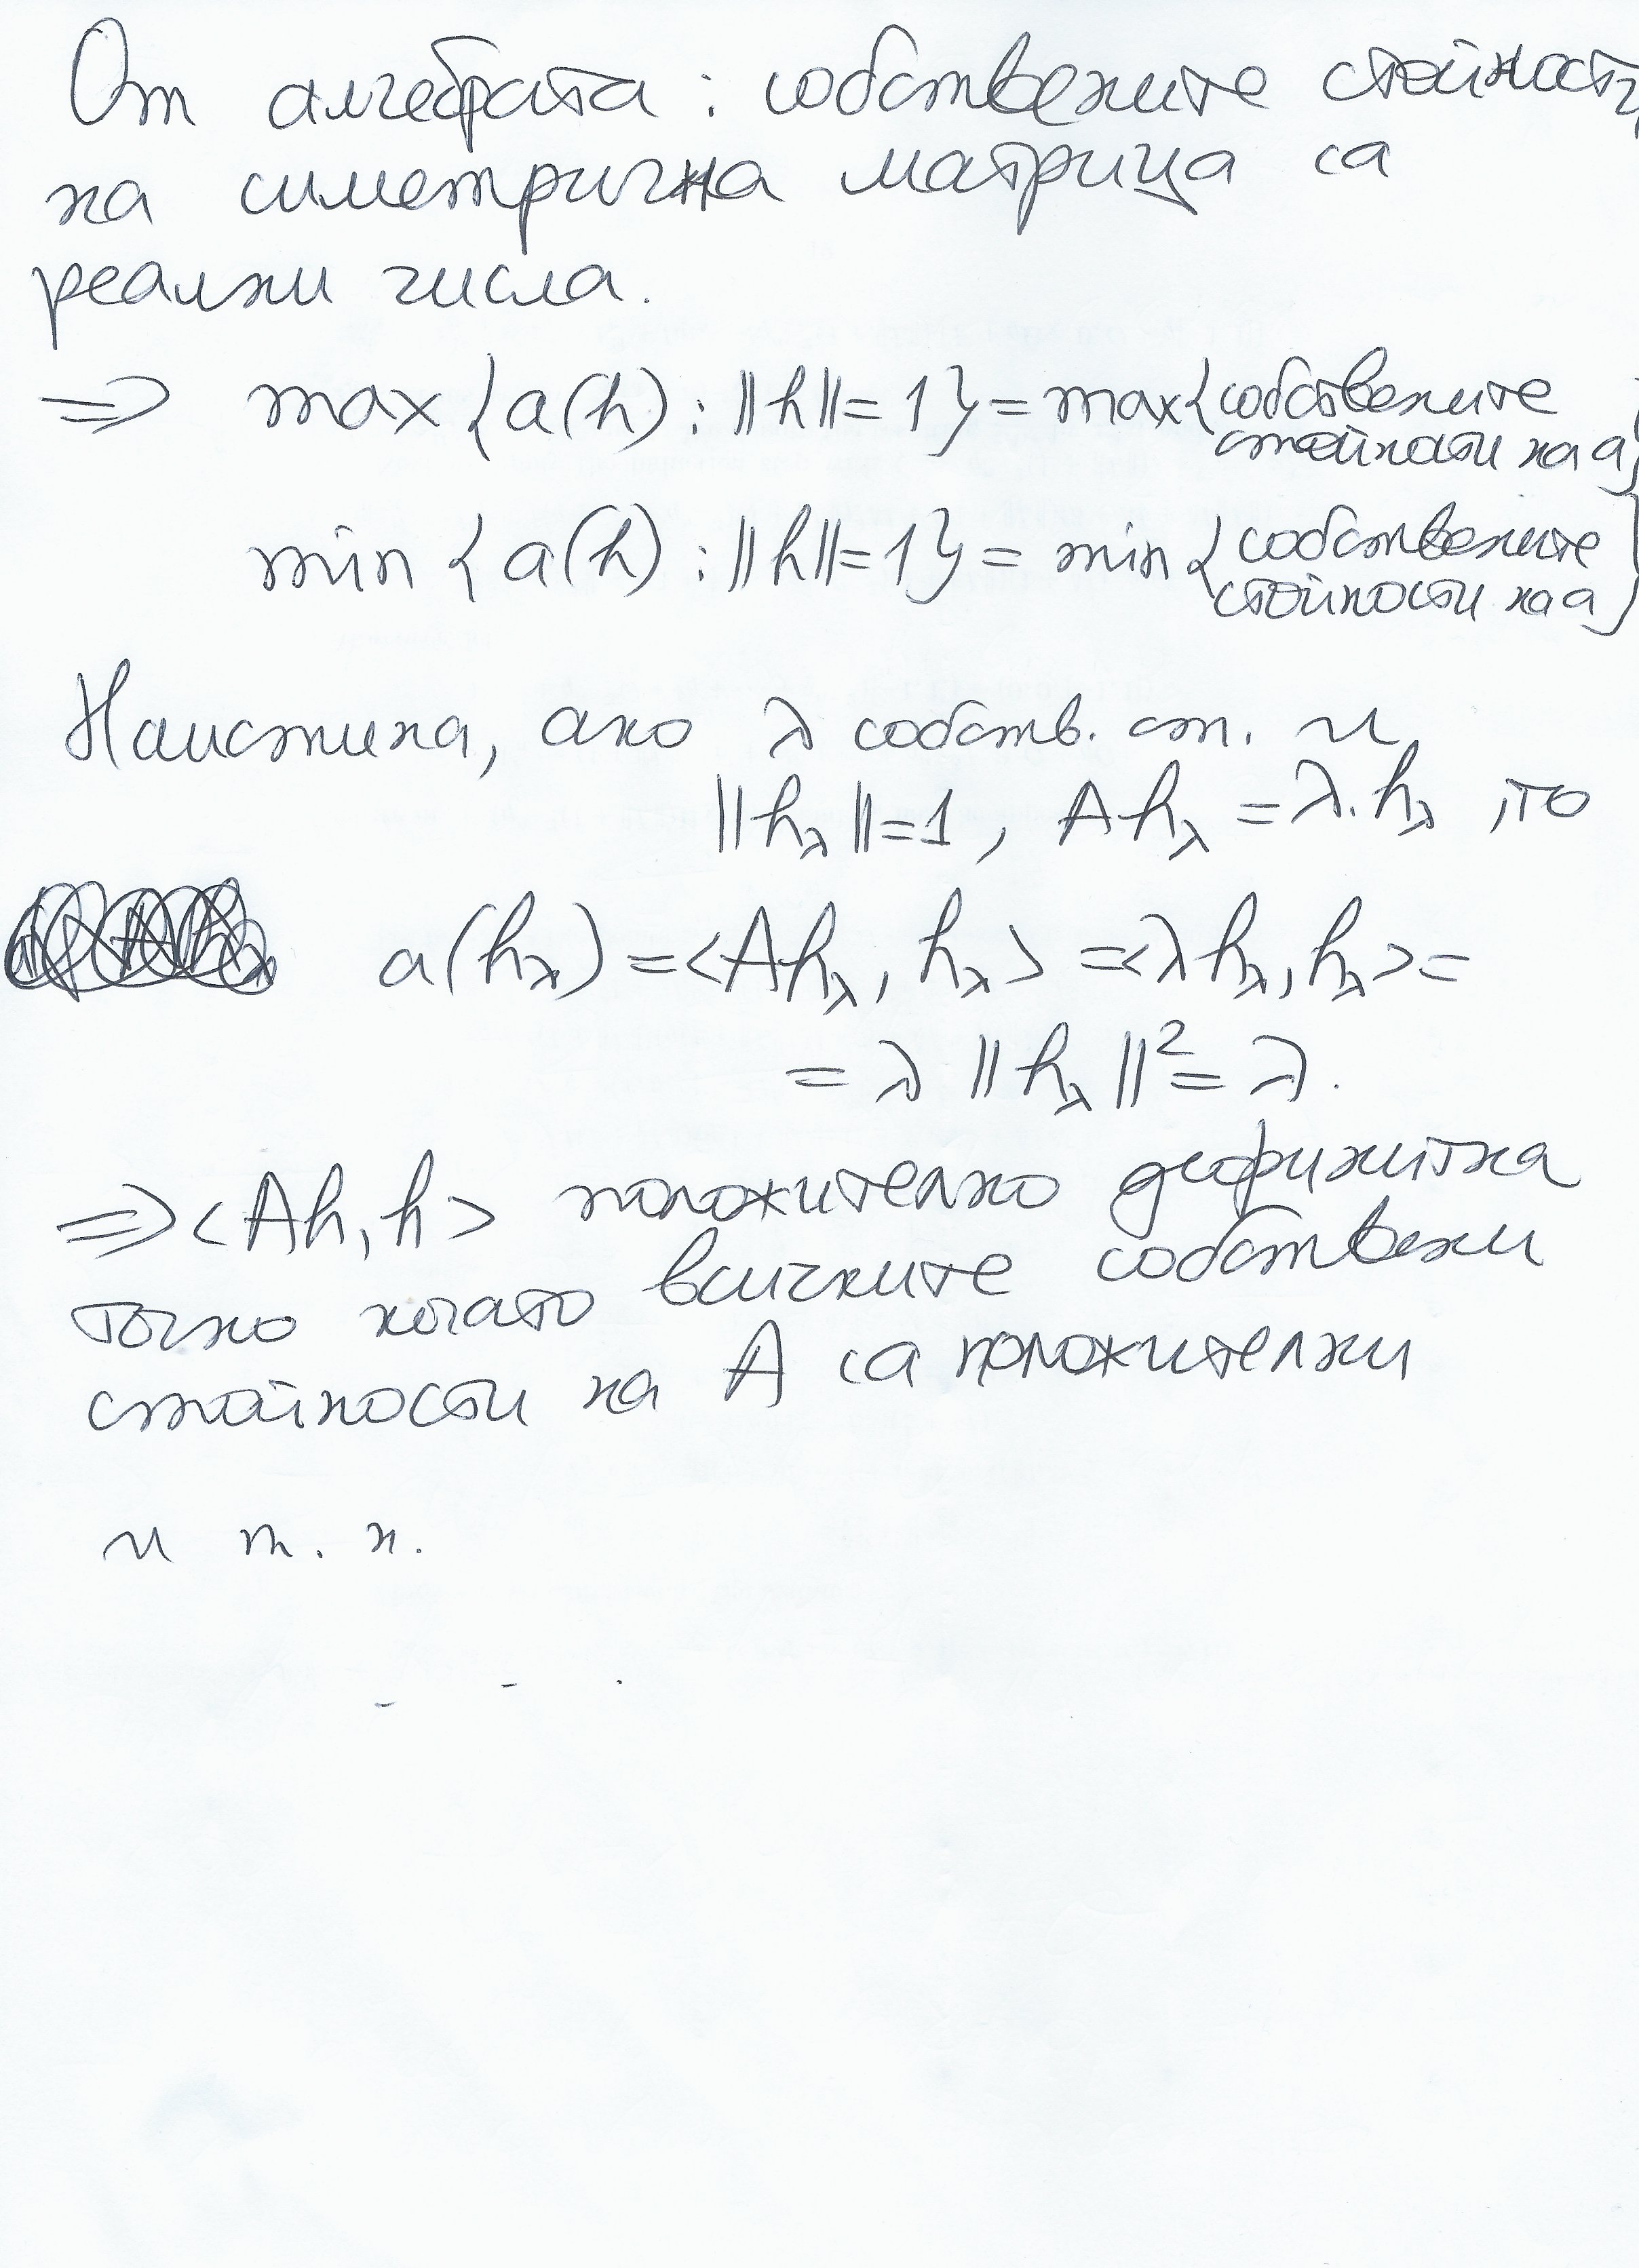 От алгебрата : собствените стойности
на симетрична матрица са
реални числа.
⇒ max {a(h) : ||h|| = 1} = max{собствените
стойности на a}
min {a(h) : ||h|| = 1} = min {собствените
стойности на a}
Наистина, ако λ собств. ст. и
||h_λ|| = 1, Ah_λ = λ.h_λ, то
a(h_λ) = <Ah_λ, h_λ> = <λh_λ, h_λ> =
= λ ||h_λ||² = λ.
⇒ <Ah, h> положително дефинитна
точно когато всичките собствени
стойности на A са положителни
и т. н.